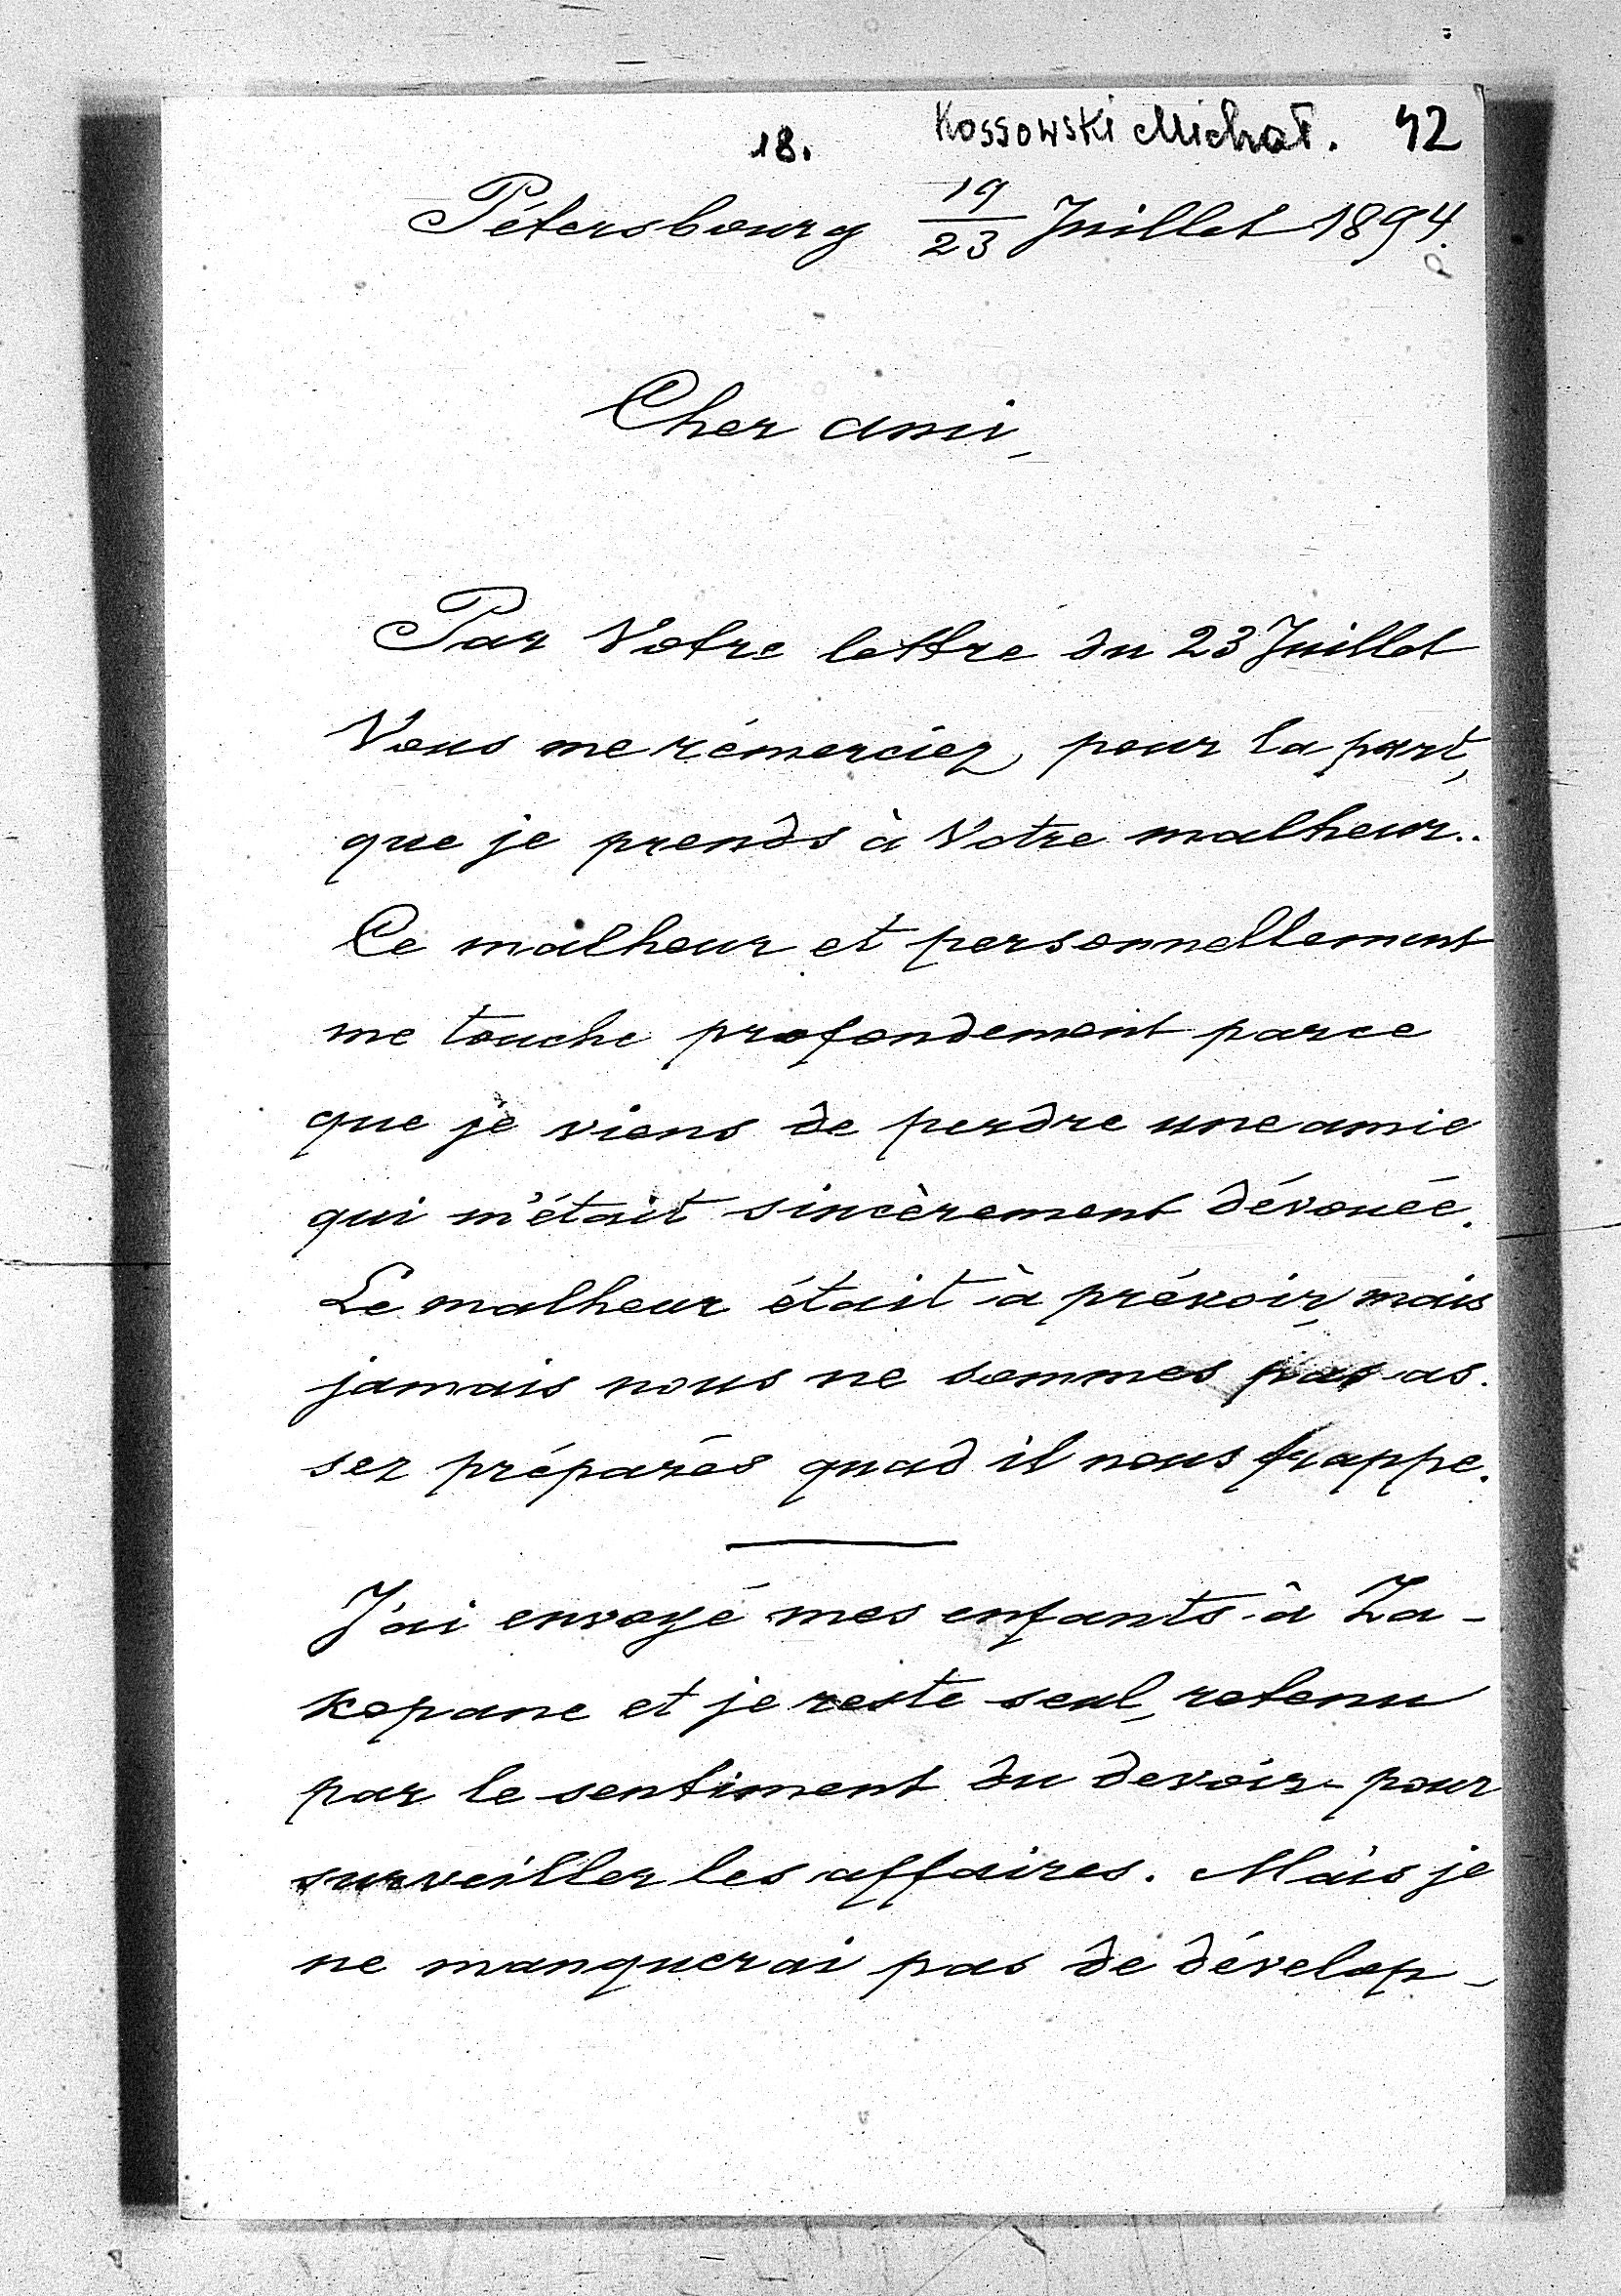 18. Kossowski Michał. 42
Pétersbourg 19/23 Juillet 1894.
Cher ami,
Par Votre lettre du 23 Juillet
Vous me rémerciez, pour la part,
que je prends à Votre malheur..
Ce malheur et personnellement
me touche profondement parce
que je viens de perdre une amie
qui m'était sincèrement dévouée.
Le malheur était à prévoir, mais
jamais nous ne sommes pas as-
sez préparés quad il nous frappe.
J'ai envoyé mes enfants à Za-
kopane et je reste seul, retenu
par le sentiment du devoir pour
surveiller les affaires. Mais je
ne manquerai pas de dévelop-